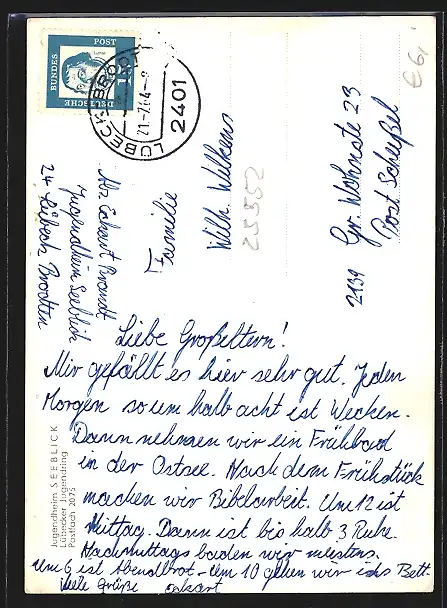 DEUTSCHE
BUNDES
POST
15
LÜBECK-BRODTEN
21-7.64-8
2401
€6,-
Abs Eckart Brandt
Jugendheim Seeblick
24 Lübeck Brodten
Familie
Wilh. Wilkens
25552
2139
Gr. Wohnste 23
Post Scheeßel
Jugendheim SEEBLICK
Lübecker Jugendring
Postfach 2075
Liebe Großeltern!
Mir gefällt es hier sehr gut. Jeden
Morgen so um halb acht ist Wecken.
Dann nehmen wir ein Frühbad
in der Ostsee. Nach dem Frühstück
machen wir Bibelarbeit. Um 12 ist
Mittag. Dann ist bis halb 3 Ruhe.
Nachmittags baden wir meistens.
Um 6 ist Abendbrot - Um 10 gehen wir ins Bett.
Viele Grüße Eckart